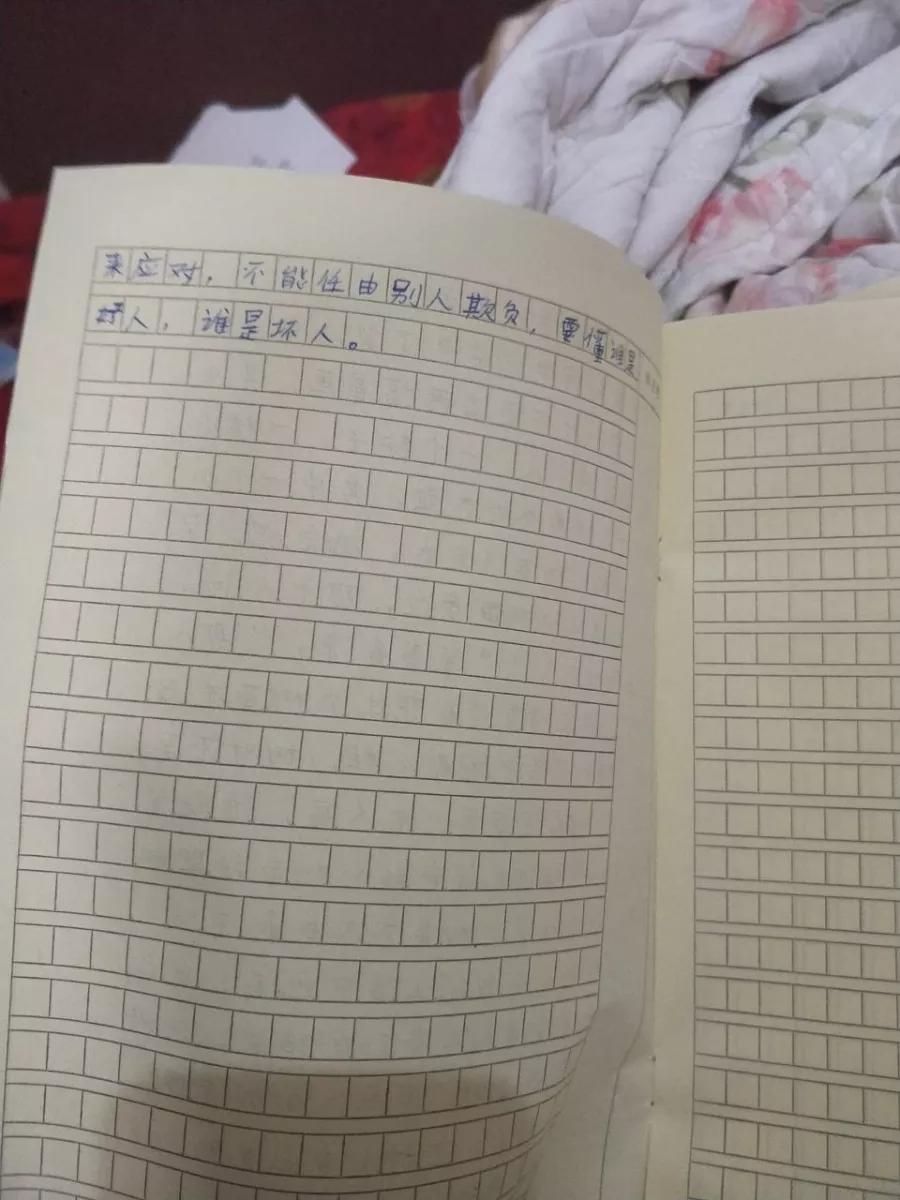 来应对，不能任由别人欺负，要懂谁是
好人，谁是坏人。